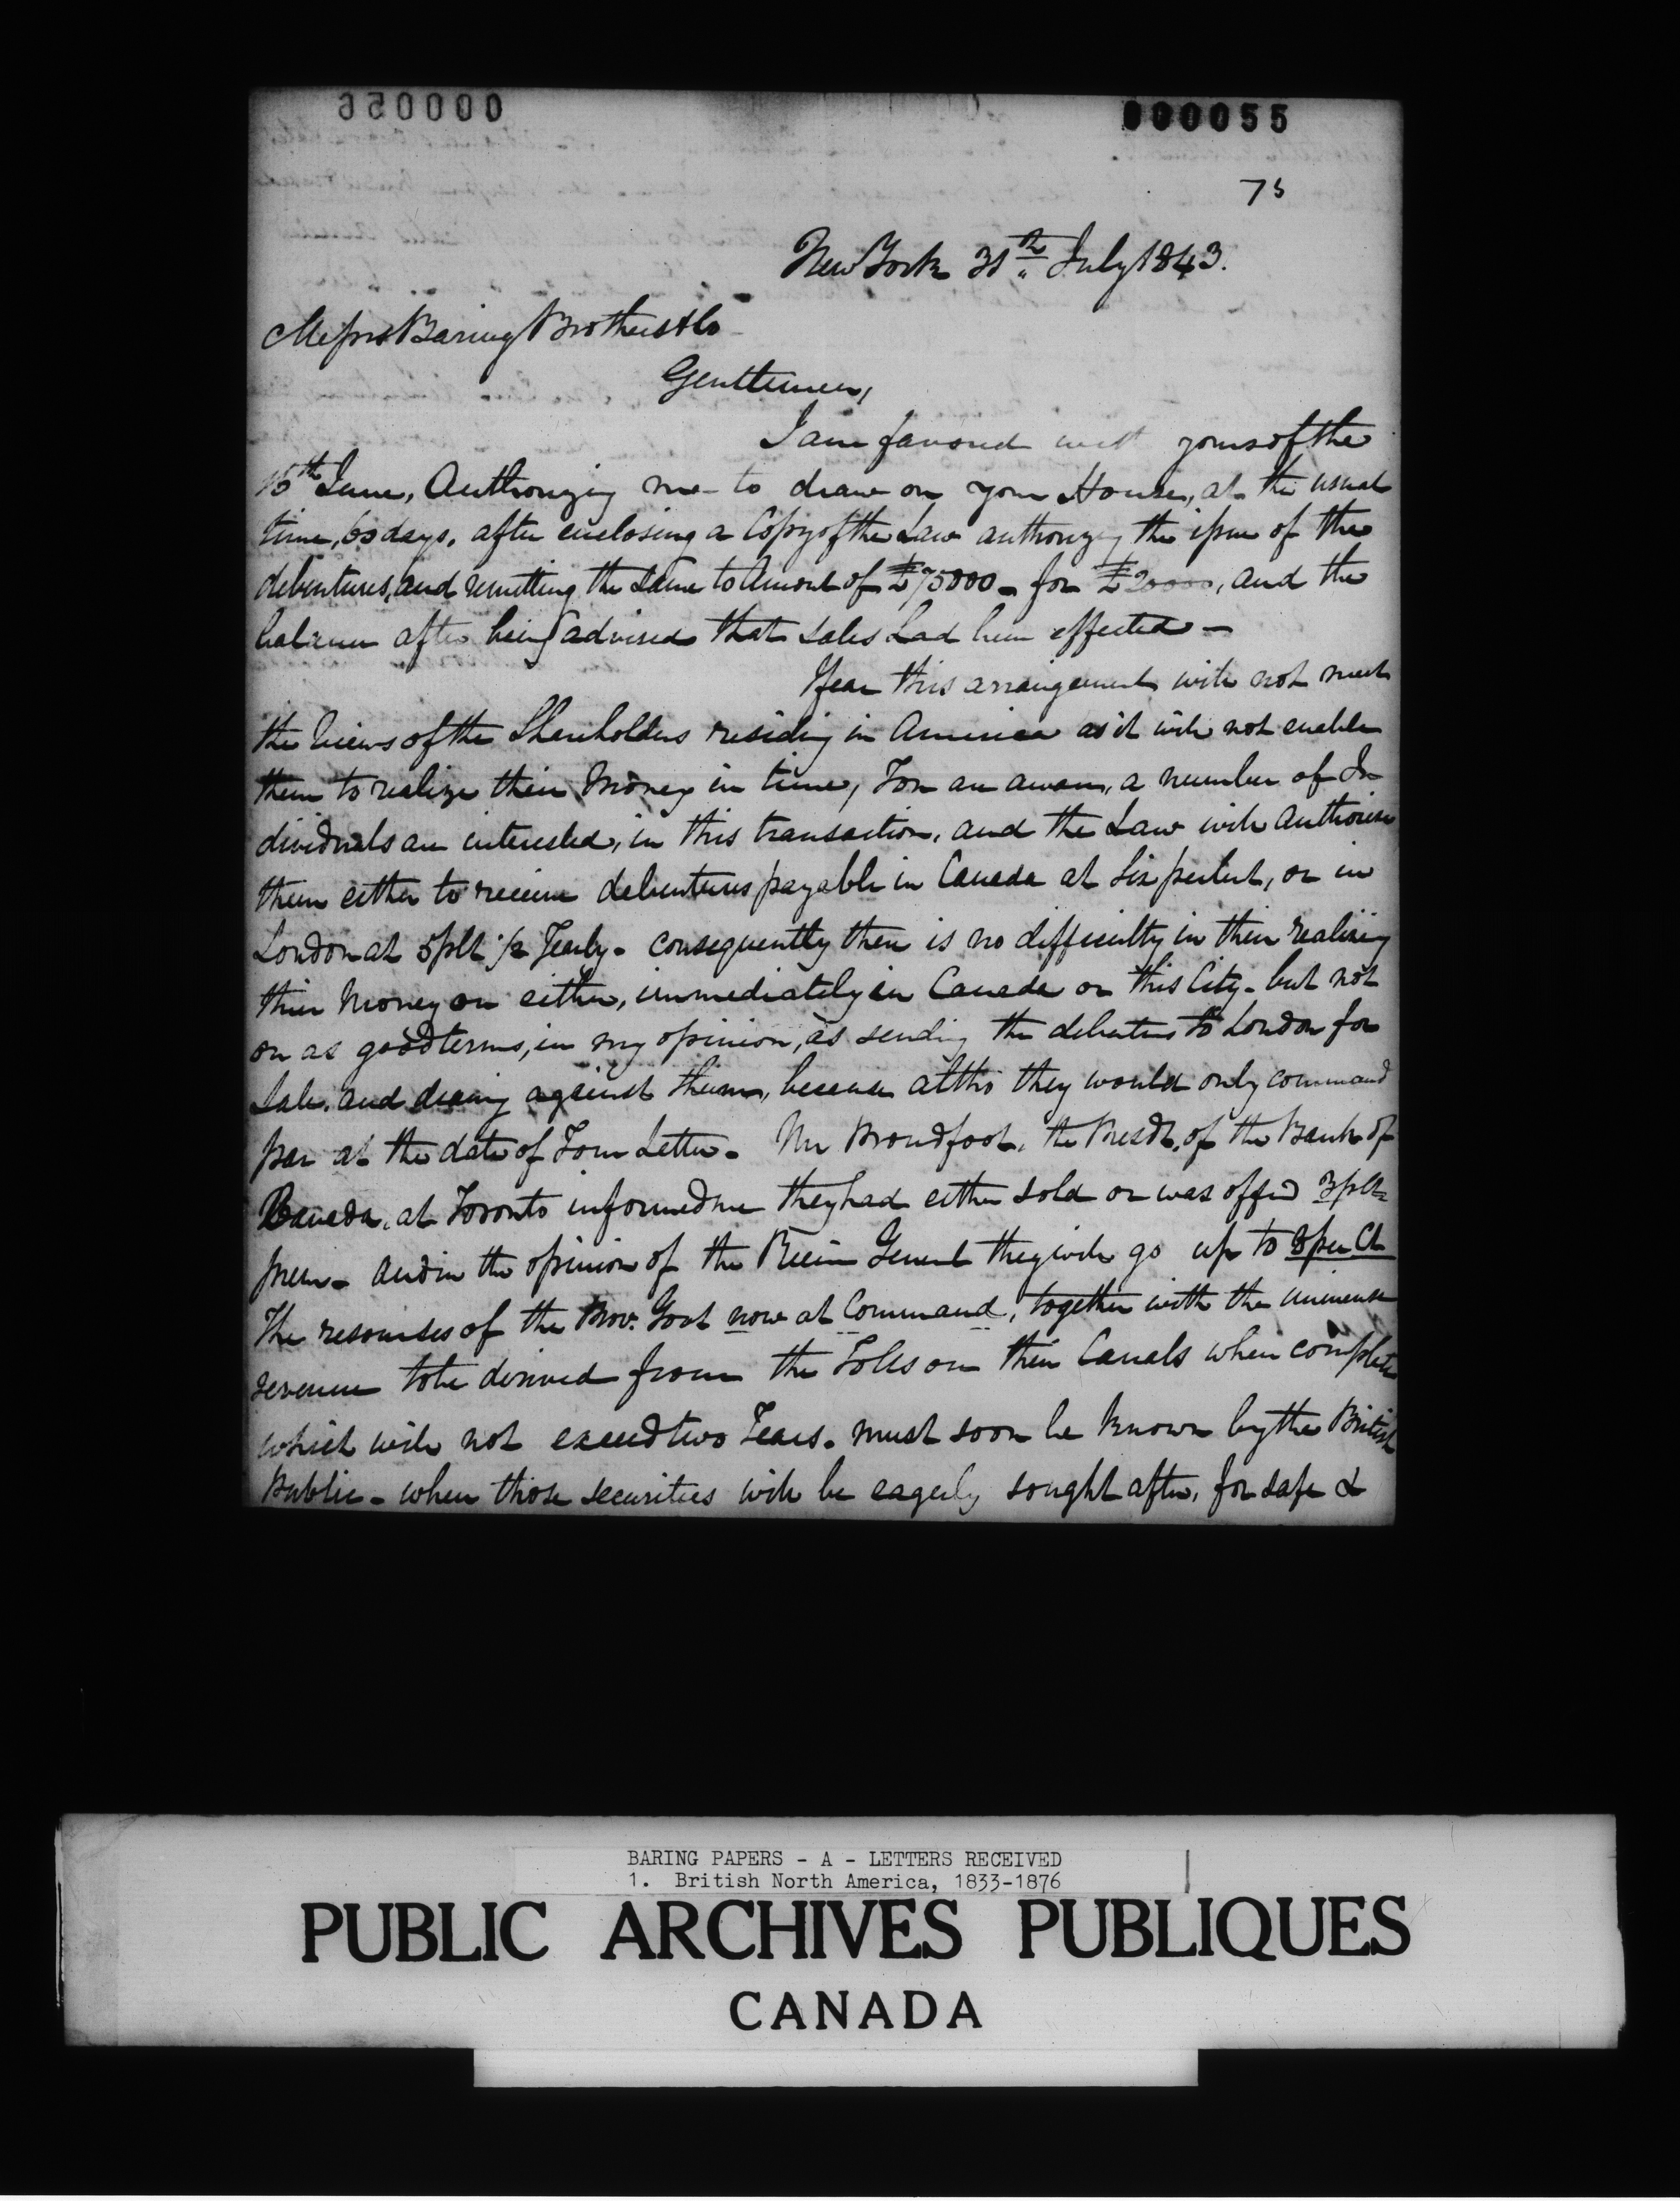 000055
73
New York 31th July 1843.
Messrs Baring Brothers & Co
Gentlemen,
I am favored with yours of the
15th June, Authorizing me to draw on your House, at the usual
time, 60 days, after enclosing a Copy of the Law authorizing the issue of the
debentures, and remitting the same to Amount of £75000 - for £20000, and the
balance after being advised that sales had been effected -
I fear this arrangement will not meet
the views of the Shareholders residing in America as it will not enable
them to realize their Money in time, You are aware, a number of In
dividuals are interested, in this transaction, and the Law will authorise
them either to receive debentures payable in Canada at Six per Cent, or in
London at 5 p Ct 1/2 Yearly - consequently there is no difficulty in their realizing
their Money on either, immediately in Canada or this City - but not
on as good terms, in my opinion, as sending the debentures to London for
Sale, and drawing against them, because altho they would only command
par at the date of Your Letter - Mr Proudfoot, the Presdt. of the Bank of
Canada, at Toronto informed me they had either sold or was offered 3 p Ct
prem - and in the opinion of the Receiver General they will go up to 8 per Ct
The resourses of the Prov. Govt now at Command, together with the immense
revenue to be derived from the Tolls on their Canals when complete
which will not exceed two Years - must soon be known by the British
Public - when those securities will be eagerly sought after, for safe &
BARING PAPERS - A - LETTERS RECEIVED
1. British North America, 1833-1876
PUBLIC ARCHIVES PUBLIQUES
CANADA